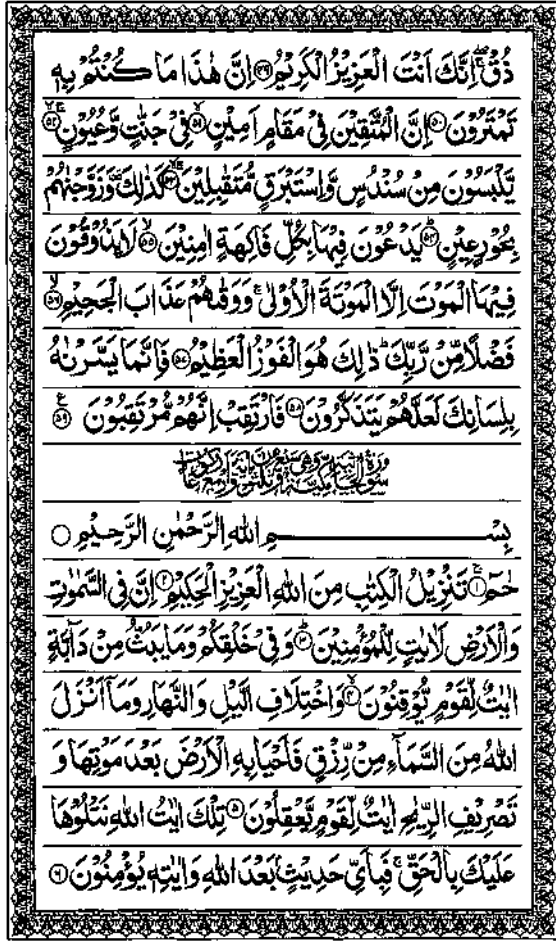 ذُقْ ۚ اِنَّكَ اَنْتَ الْعَزِيْزُ الْكَرِيْمُ ﴿۴۹﴾ اِنَّ هٰذَا مَا كُنْتُمْ بِهٖ
تَمْتَرُوْنَ ﴿۵۰﴾ اِنَّ الْمُتَّقِيْنَ فِيْ مَقَامٍ اَمِيْنٍ ﴿۵۱﴾ فِيْ جَنّٰتٍ وَّعُيُوْنٍ ﴿۵۲﴾
يَّلْبَسُوْنَ مِنْ سُنْدُسٍ وَّاِسْتَبْرَقٍ مُّتَقٰبِلِيْنَ ﴿۵۳﴾ كَذٰلِكَ وَزَوَّجْنٰهُمْ
بِحُوْرٍ عِيْنٍ ﴿۵۴﴾ يَدْعُوْنَ فِيْهَا بِكُلِّ فَاكِهَةٍ اٰمِنِيْنَ ﴿۵۵﴾ لَا يَذُوْقُوْنَ
فِيْهَا الْمَوْتَ اِلَّا الْمَوْتَةَ الْاُوْلٰى ۚ وَوَقٰىهُمْ عَذَابَ الْجَحِيْمِ ﴿۵۶﴾
فَضْلًا مِّنْ رَّبِّكَ ؕ ذٰلِكَ هُوَ الْفَوْزُ الْعَظِيْمُ ﴿۵۷﴾ فَاِنَّمَا يَسَّرْنٰهُ
بِلِسَانِكَ لَعَلَّهُمْ يَتَذَكَّرُوْنَ ﴿۵۸﴾ فَارْتَقِبْ اِنَّهُمْ مُّرْتَقِبُوْنَ ﴿۵۹﴾
سُوْرَةُ الْجَاثِيَةِ مَكِّيَّةٌ وَّهِيَ سَبْعٌ وَّثَلٰثُوْنَ اٰيَةً وَّاَرْبَعُ رُكُوْعَاتٍ
بِسْمِ اللّٰهِ الرَّحْمٰنِ الرَّحِيْمِ ○
حٰمٓ ﴿۱﴾ تَنْزِيْلُ الْكِتٰبِ مِنَ اللّٰهِ الْعَزِيْزِ الْحَكِيْمِ ﴿۲﴾ اِنَّ فِي السَّمٰوٰتِ
وَالْاَرْضِ لَاٰيٰتٍ لِّلْمُؤْمِنِيْنَ ﴿۳﴾ وَفِيْ خَلْقِكُمْ وَمَا يَبُثُّ مِنْ دَآبَّةٍ
اٰيٰتٌ لِّقَوْمٍ يُّوْقِنُوْنَ ﴿۴﴾ وَاخْتِلَافِ الَّيْلِ وَالنَّهَارِ وَمَاۤ اَنْزَلَ
اللّٰهُ مِنَ السَّمَآءِ مِنْ رِّزْقٍ فَاَحْيَا بِهِ الْاَرْضَ بَعْدَ مَوْتِهَا وَ
تَصْرِيْفِ الرِّيٰحِ اٰيٰتٌ لِّقَوْمٍ يَّعْقِلُوْنَ ﴿۵﴾ تِلْكَ اٰيٰتُ اللّٰهِ نَتْلُوْهَا
عَلَيْكَ بِالْحَقِّ ۚ فَبِاَيِّ حَدِيْثٍۭ بَعْدَ اللّٰهِ وَاٰيٰتِهٖ يُؤْمِنُوْنَ ﴿۶﴾